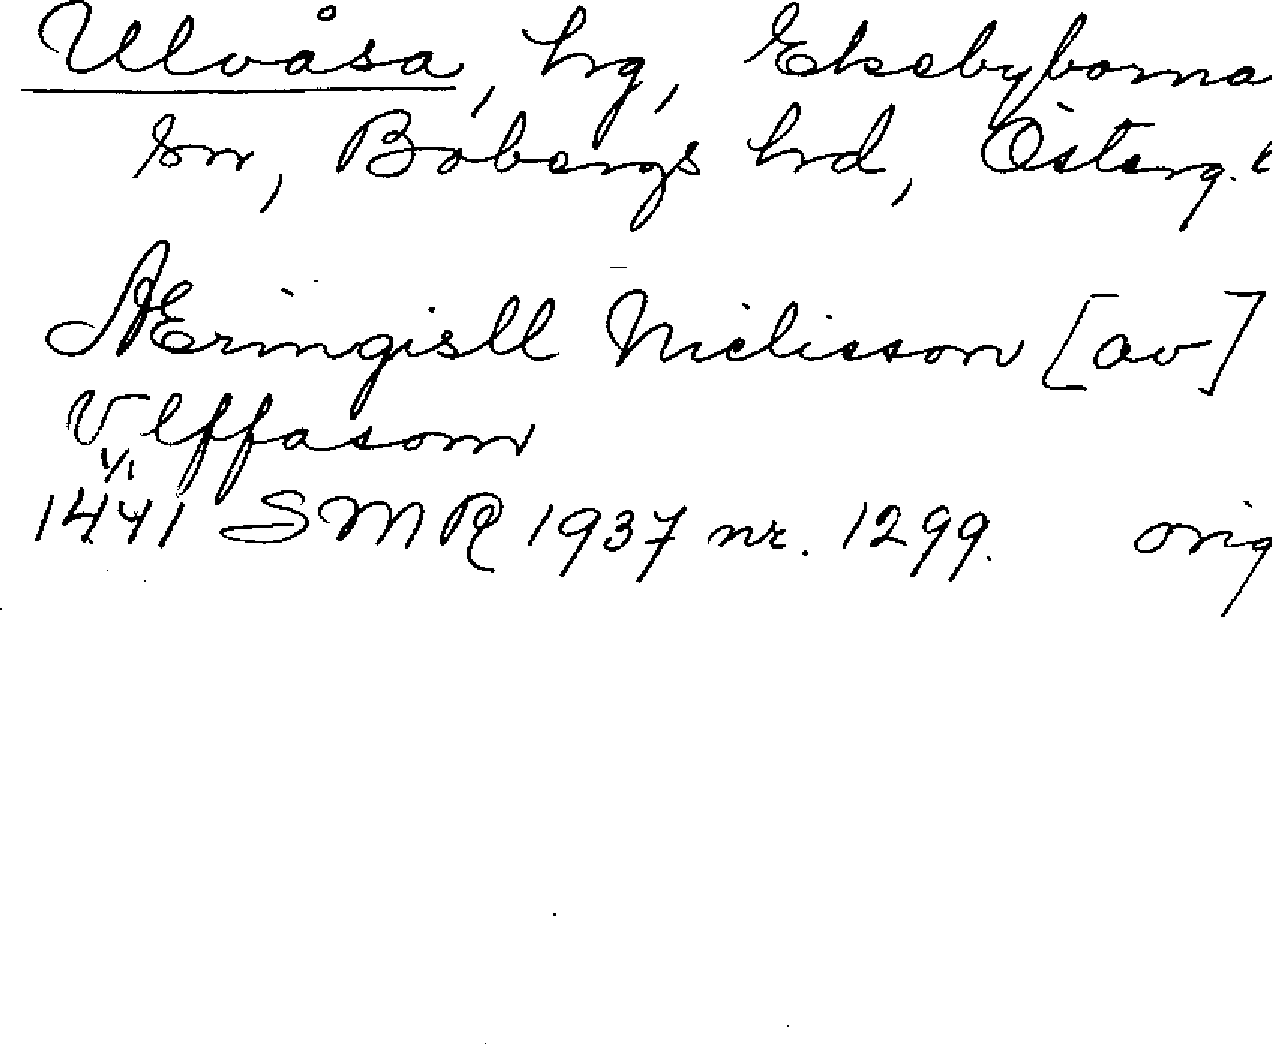 Ulvåsa, hg, Ekebyborna
sn, Bobergs hd, Österg. l
Æringisll Niclisson [av]
Vlffasom
1/1
1441 SMR 1937 nr. 1299. orig